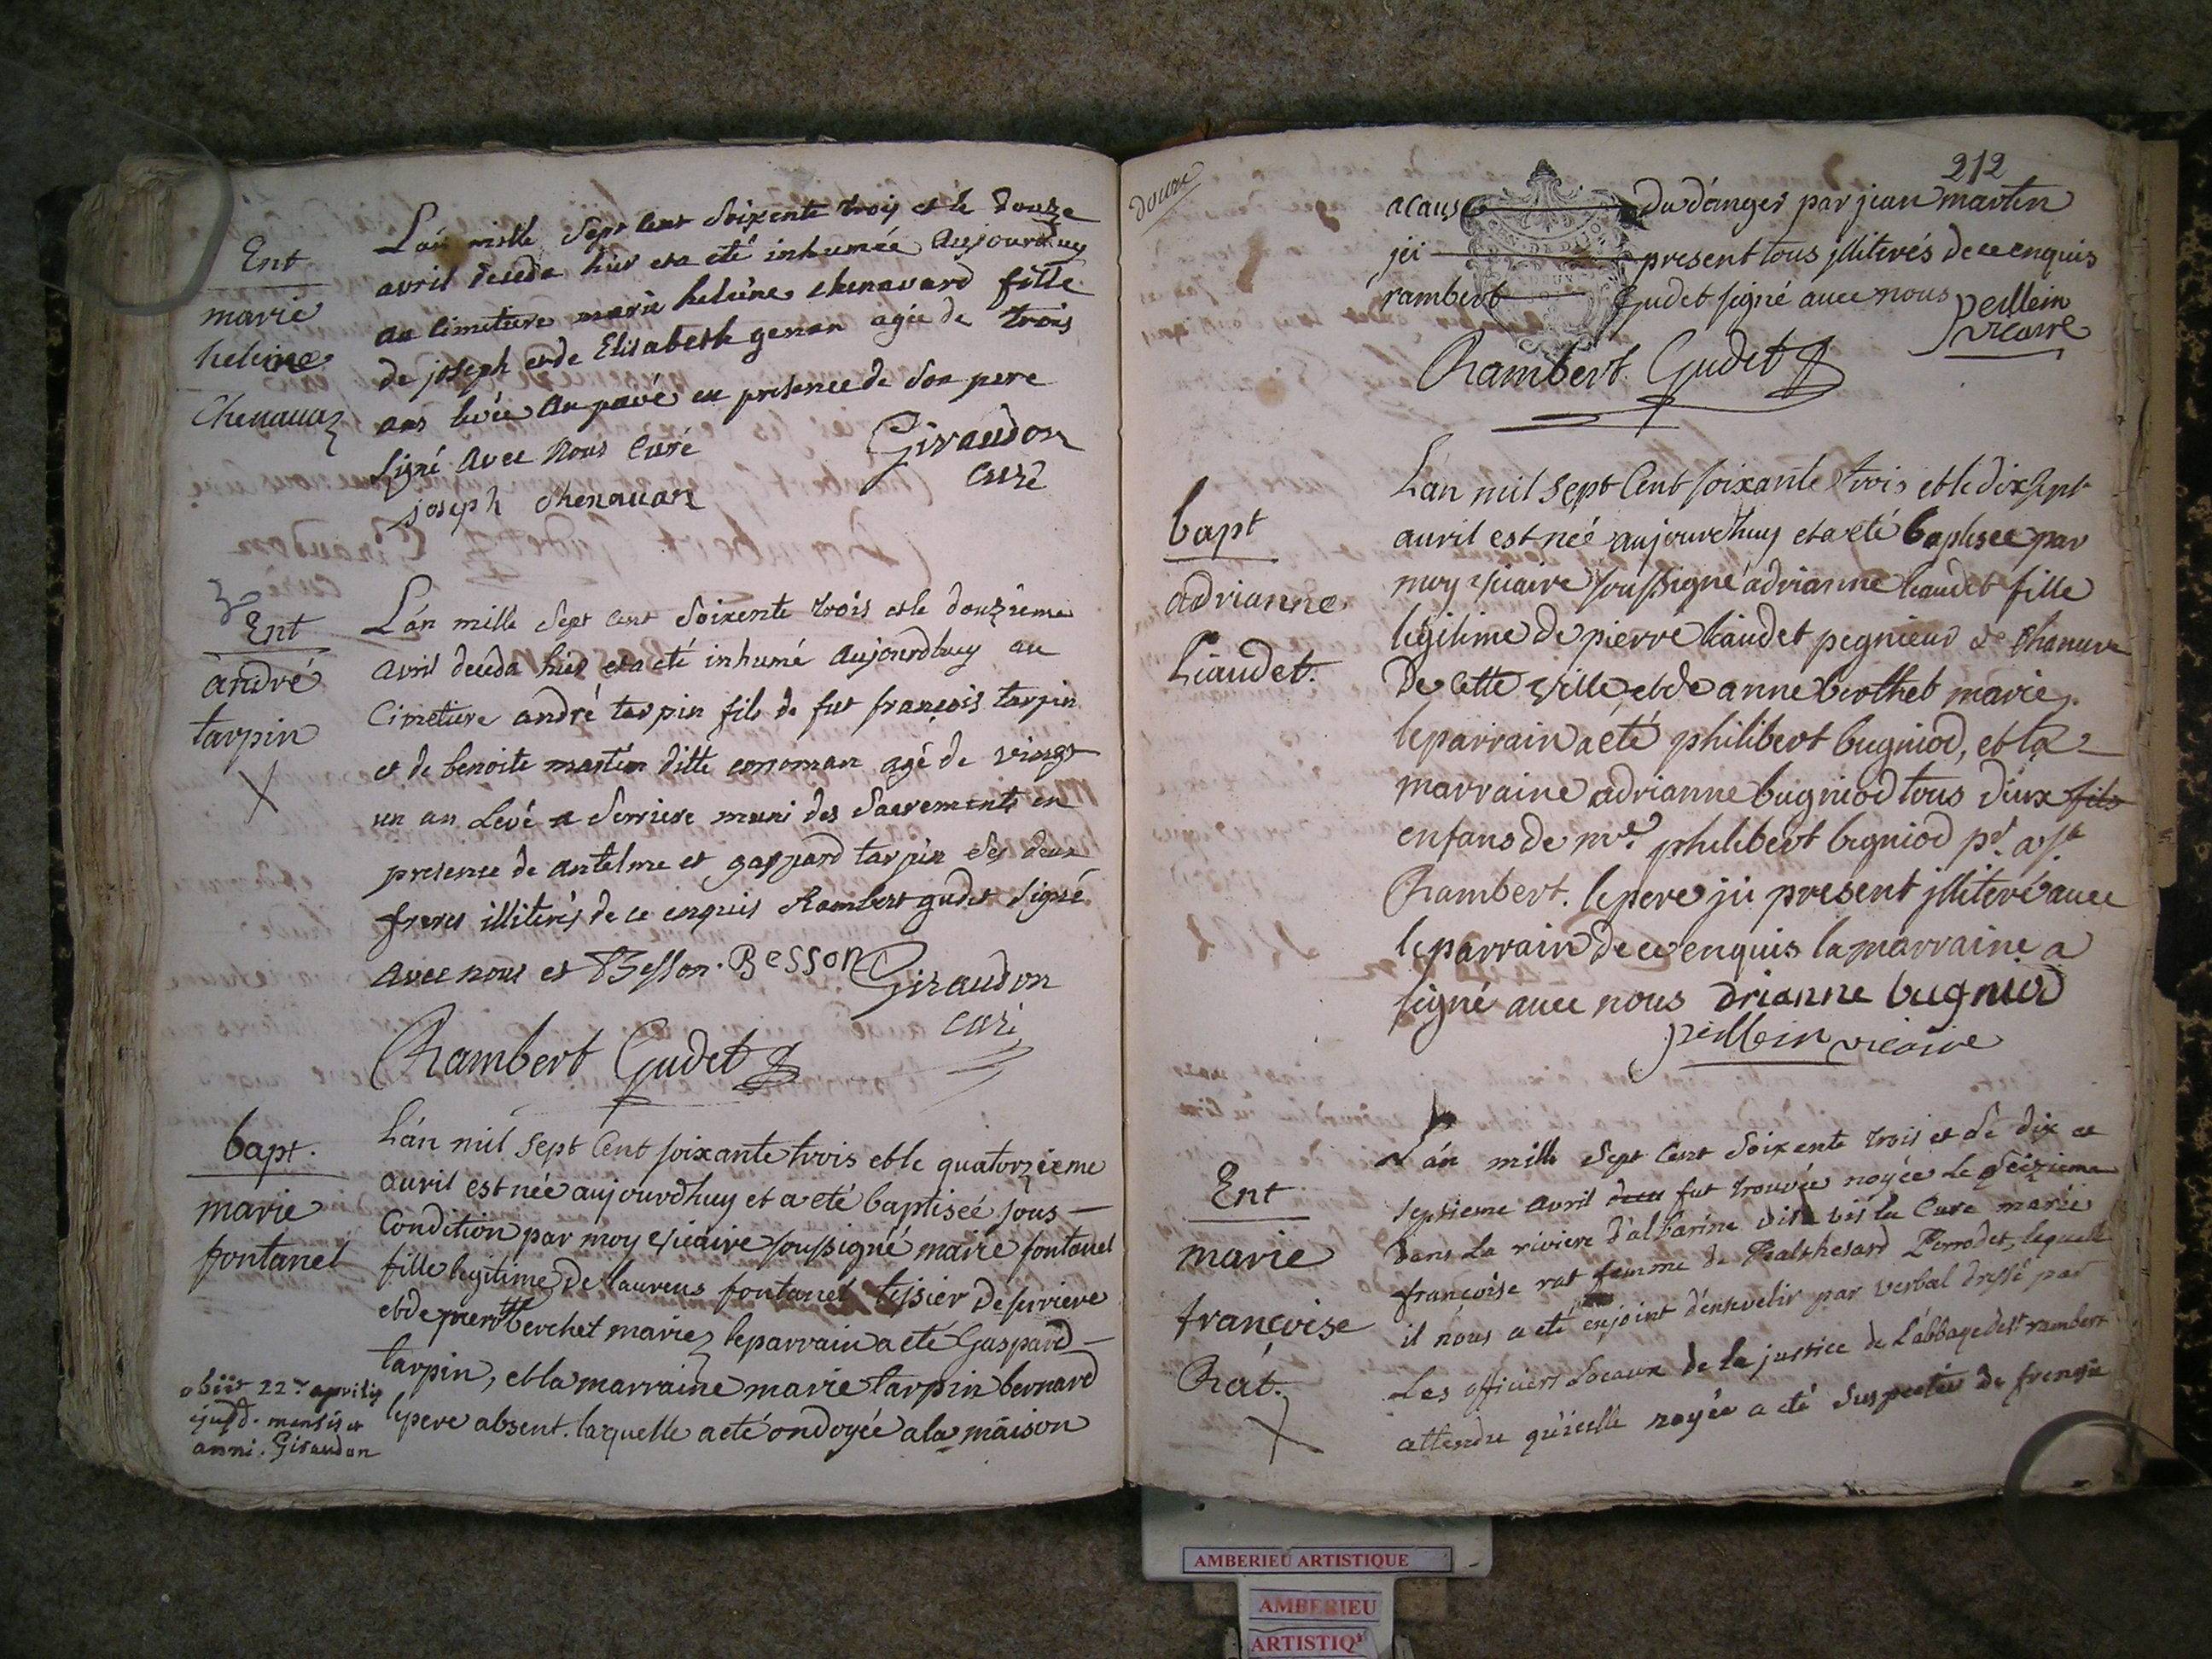 Ent
marie
heleine
Chenauaz
L'an mille Sept Cent Soixente trois et le douze
avril deceda hier et a eté inhumée Aujourdhuy
au Cimetiere marie heleine chenavard fille
de joseph et de Elisabeth genan agée de trois
ans levée au pavé en presence de son pere
signé avec nous Curé
Giraudon
curé
joseph chenauan
Ent
andré
tarpin
L'an mille Sept Cent Soixente trois et le douzieme
avril deceda hier et a eté inhumé Aujourdhuy au
Cimetiere andré tarpin fils de fut françois tarpin
et de benoite martin ditte conoman agé de vingt
un an Levé a Serriere muni des Sacrements en
presence de antelme et gaspard tarpin ses deux
freres illiterés de ce enquis Rambert gudet signé
avec nous et Besson. Besson Giraudon
curé
Rambert Gudet
bapt.
marie
fontanel
L'an mil sept Cent soixante trois et le quatorzieme
avril est née aujourdhuy et a eté baptisée sous
Condition par moy vicaire soussigné marie fontanel
fille legitime de laurens fontanel tissier de serriere
et de pierrette berchet mariez le parrain a eté Gaspard
tarpin, et la marraine marie tarpin bernard
le pere absent. laquelle a eté ondoyée a la maison
obiit 22a aprilis
ejusd. mensis et
anni. Giraudon
douze
212
a cause du danger par jean martin
jci present tous jlliterés de ce enquis
rambert Gudet signé avec nous peillein
vicaire
Rambert Gudet
bapt
adrianne
Liaudet.
L'an mil sept Cent soixante trois et le dix sept
auril est née aujourdhuy et a eté baptisee par
moy vicaire soussigné adrianne liaudet fille
legitime de pierre liaudet pegnieur de chanure
De cette ville, et de anne berthet mariez.
le parrain a eté philibert bugniod, et la
marraine adrianne bugniod tous deux fils
enfans de mre. philibert bugniod pr. a st
Rambert. le pere jci present jlliteré avec
le parrain de ce enquis la marraine a
signé avec nous drianne bugniod
peillein vicaire
Ent
marie
françoise
Rat.
L'an mille Sept Cent Soixente trois et le dix et
septieme avril fut trouvée noyée le seizieme
dans la riviere d'albarine vis a vis la Cure marie
françoise rat femme de Balthesard Perrodet, lequelle
il nous a eté enjoint d'ensevelir par verbal dressé par
Les officiers Locaux de la justice de L'abbaye de st rambert
attendu qu'icelle noyée a eté suspectée de frenesie
AMBERIEU ARTISTIQUE
AMBERIEU
ARTISTIQ